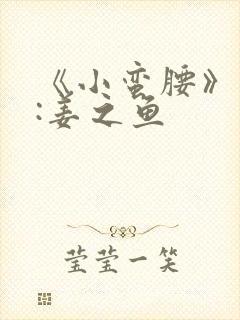 《小蛮腰》
:姜之鱼
莹莹一笑